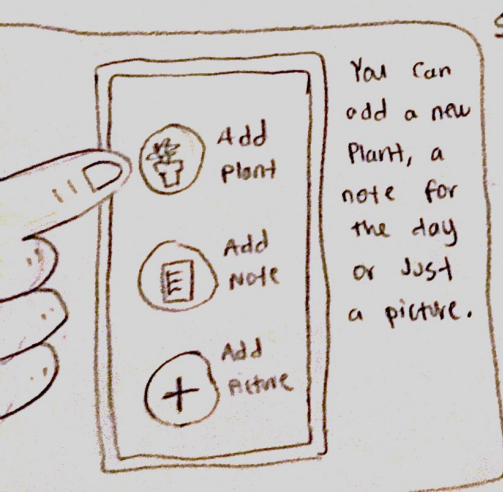 Add
Plant
Add
Note
Add
Picture
You can
add a new
Plant, a
note for
the day
or Just
a picture.